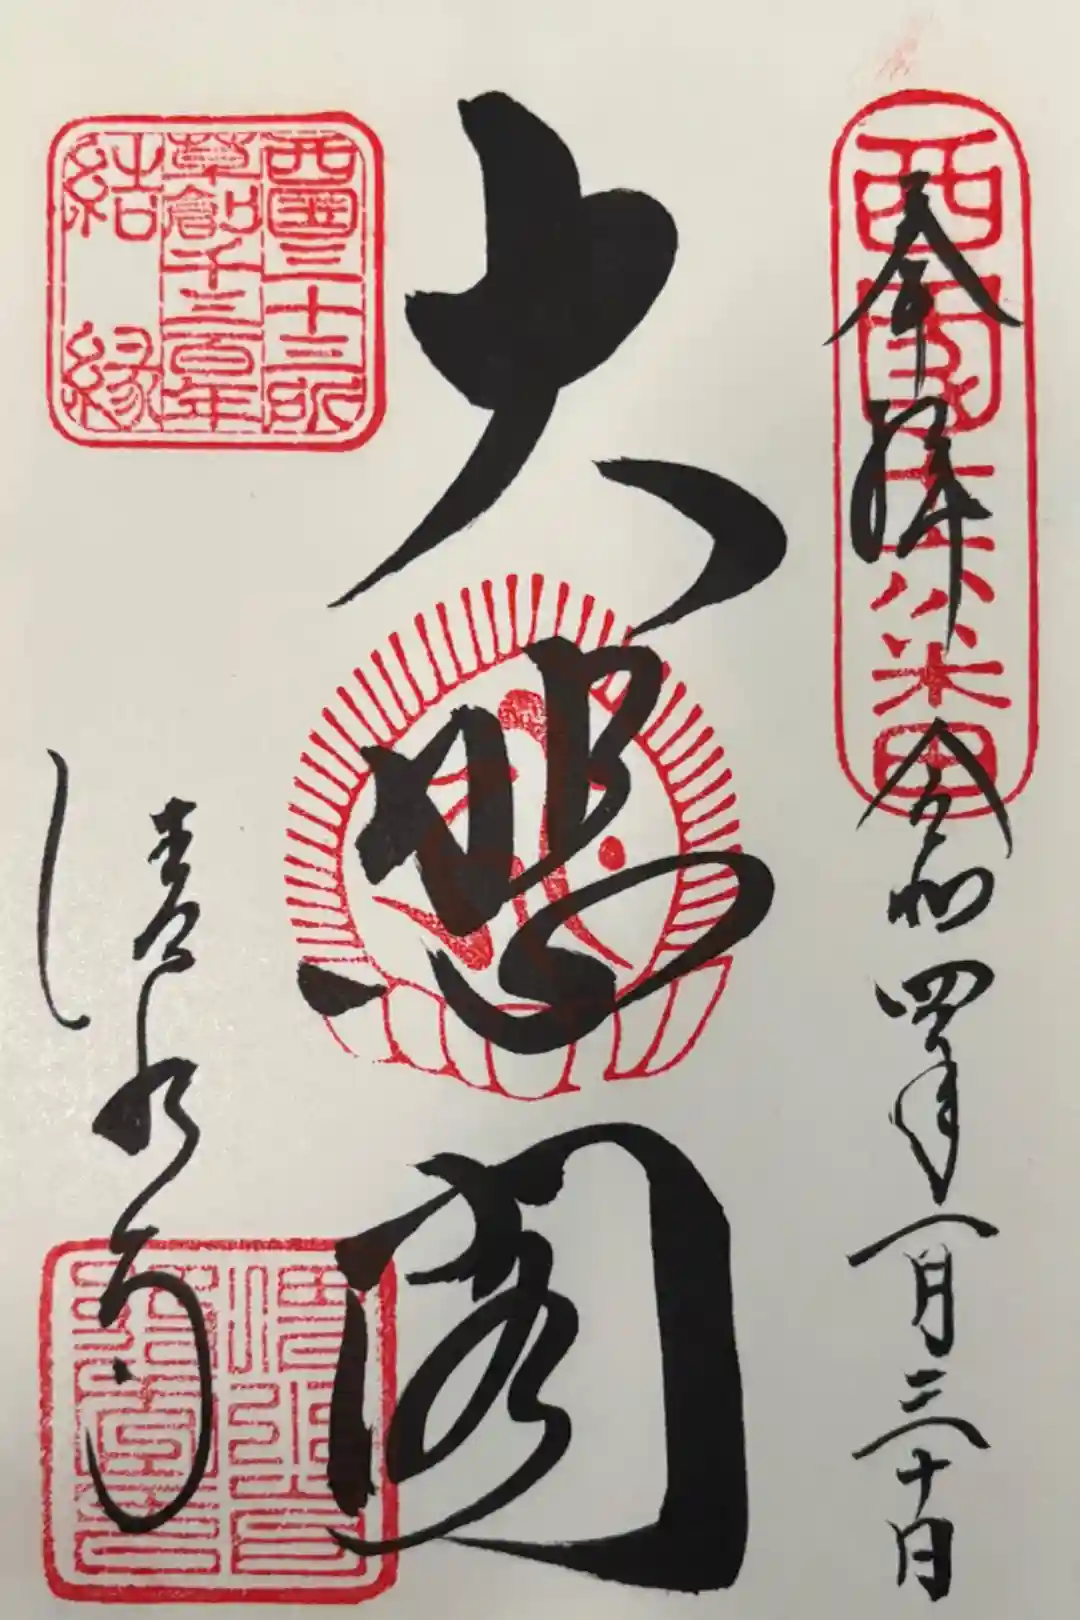 奉拝
令和四年八月三十日
西国十六番
大悲閣
清水寺
西国三十三所
草創千三百年
結縁